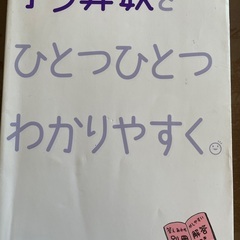 算数を
ひとつひとつ
わかりやすく。
解答